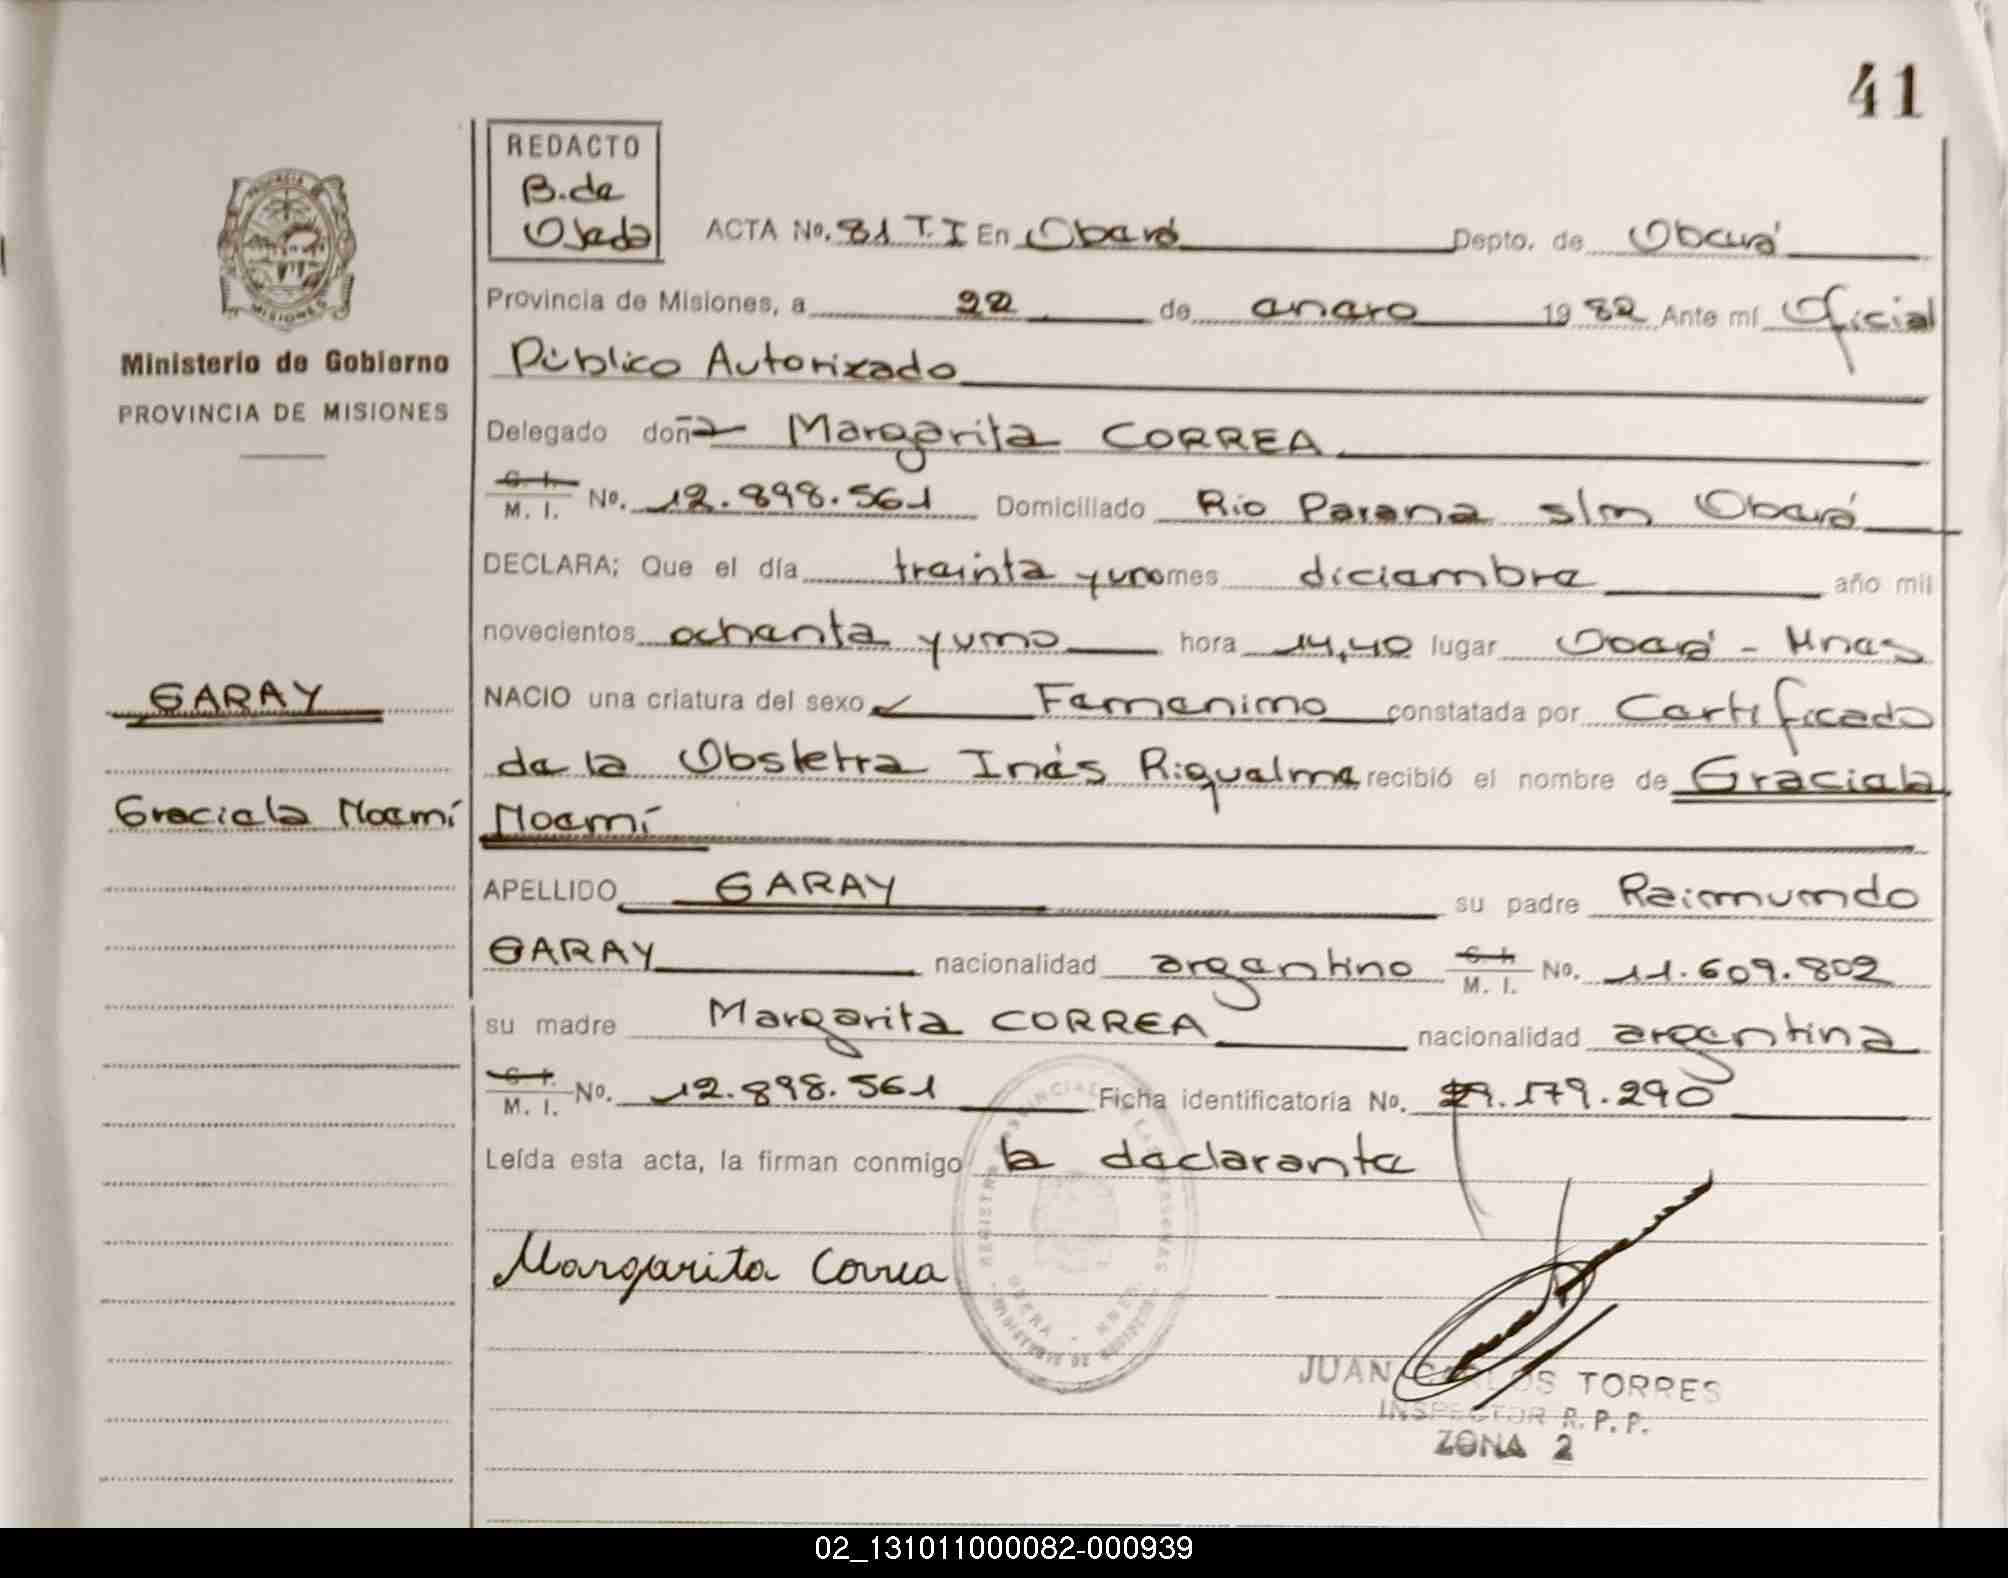 41
REDACTO
B. de
Ojeda
ACTA No. 81 T. I En Oberá Depto. de Oberá
Provincia de Misiones, a 22 de enero 1982 Ante mí Oficial
Público Autorizado
Ministerio de Gobierno
PROVINCIA DE MISIONES
Delegado doña Margarita CORREA
C. I.
M. I. No. 12.898.561 Domiciliado Rio Parana s/n Oberá
DECLARA; Que el día treinta y uno mes diciembre año mil
novecientos ochenta y uno hora 14,40 lugar Oberá - Mnes
GARAY
NACIO una criatura del sexo Femenino constatada por Certificado
de la Obstetra Inés Riquelme recibió el nombre de Graciela
Graciela Noemí
Noemí
APELLIDO GARAY su padre Raimundo
GARAY nacionalidad argentino C. I.
M. I. No. 11.609.802
su madre Margarita CORREA nacionalidad argentina
C. I.
M. I. No. 12.898.561 Ficha identificatoria No. 29.179.290
Leída esta acta, la firman conmigo la declarante
Margarita Correa
JUAN CARLOS TORRES
INSPECTOR R. P. P.
ZONA 2
02_131011000082-000939